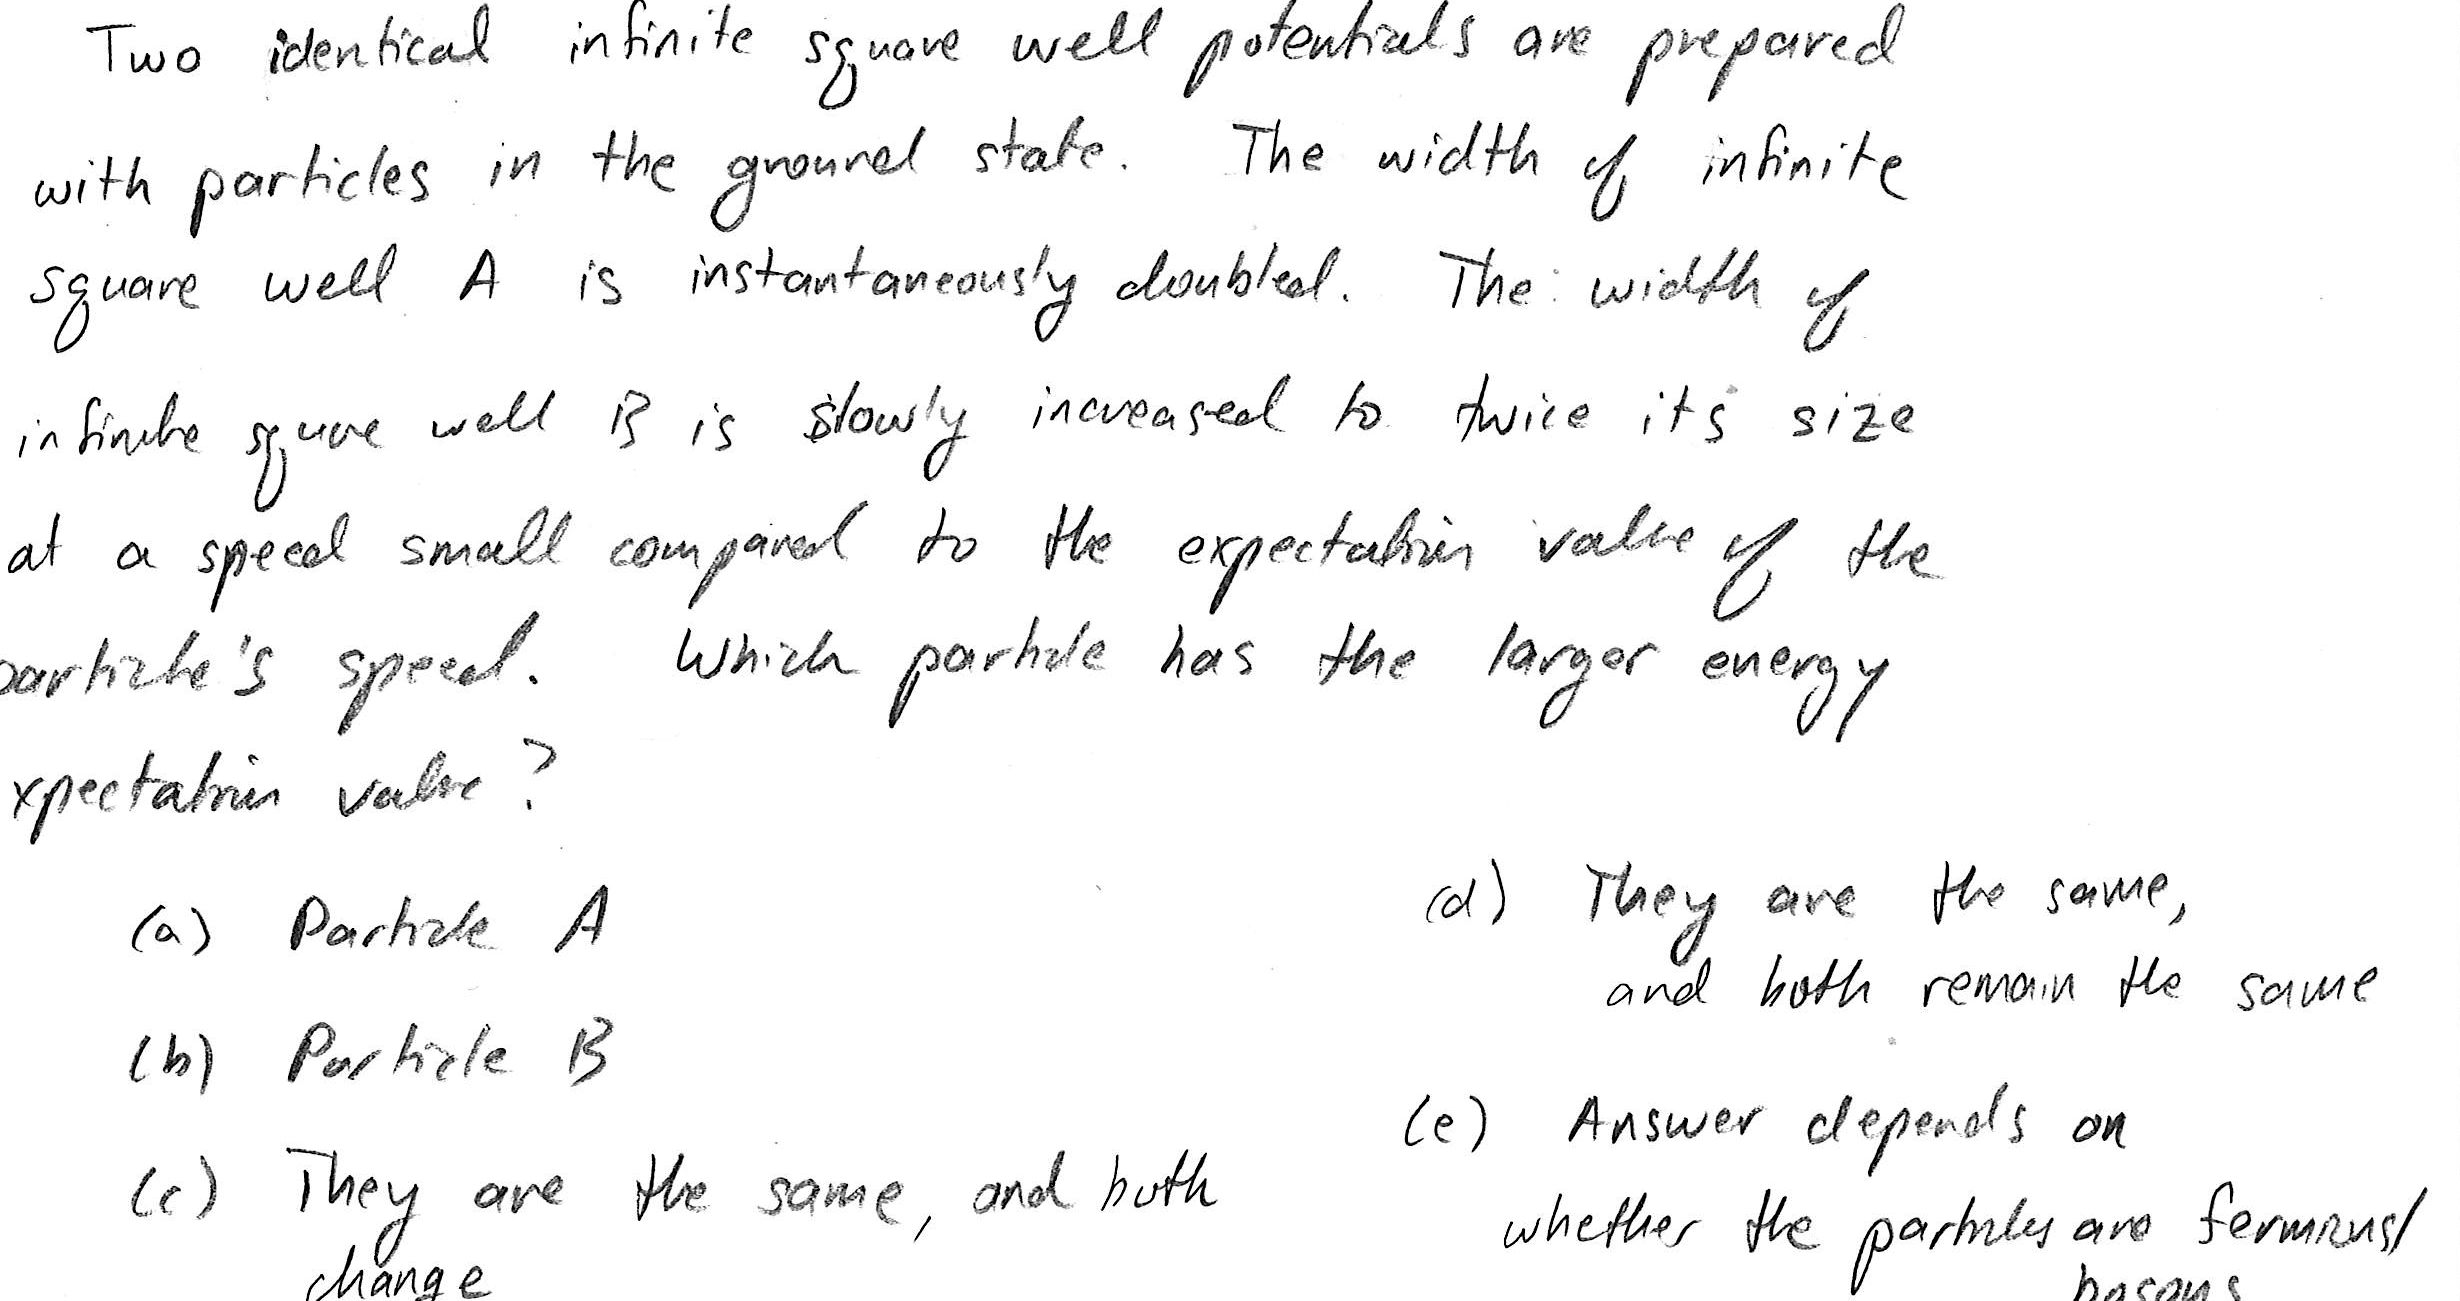 Two identical infinite square well potentials are prepared
with particles in the ground state. The width of infinite
square well A is instantaneously doubled. The width of
infinite square well B is slowly increased to twice its size
at a speed small compared to the expectation value of the
particle's speed. Which particle has the larger energy
xpectation value?
(a) Particle A
(b) Particle B
(c) They are the same, and both
change
(d) They are the same,
and both remain the same
(e) Answer depends on
whether the particles are fermions/
bosons